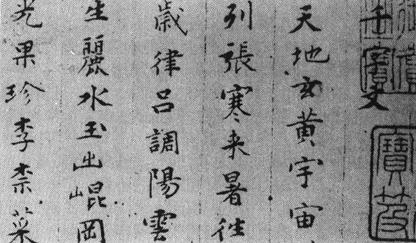 千字文
天地玄黃宇宙
列張寒来暑往
歲律呂調陽雲
生麗水玉出崑岡
光果珍李柰菜